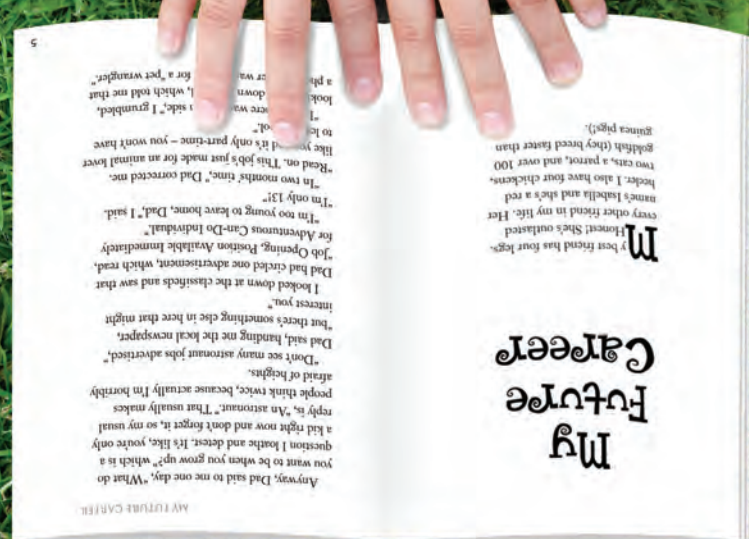 My
Future
Career
My best friend has four legs.
Honest! She's outlasted
every other friend in my life. Her
name's Isabella and she's a red
heeler. I also have four chickens,
two cats, a parrot, and over 100
goldfish (they breed faster than
guinea pigs!).
MY FUTURE CAREER
Anyway, Dad said to me one day, "What do
you want to be when you grow up?" which is a
question I loathe and detest. It's like, you're only
a kid right now and don't forget it, so my usual
reply is, "An astronaut." That usually makes
people think twice, because actually I'm horribly
afraid of heights.
"Don't see many astronaut jobs advertised,"
Dad said, handing me the local newspaper,
"but there's something else in here that might
interest you."
I looked down at the classifieds and saw that
Dad had circled one advertisement, which read,
"Job Opening, Position Available Immediately
for Adventurous Can-Do Individual."
"I'm too young to leave home, Dad," I said.
"I'm only 13!"
"In two months' time," Dad corrected me.
"Read on. This job's just made for an animal lover
like it's only part-time – you won't have
to
side," I grumbled,
down which told me that
a for a "pet wrangler."
5